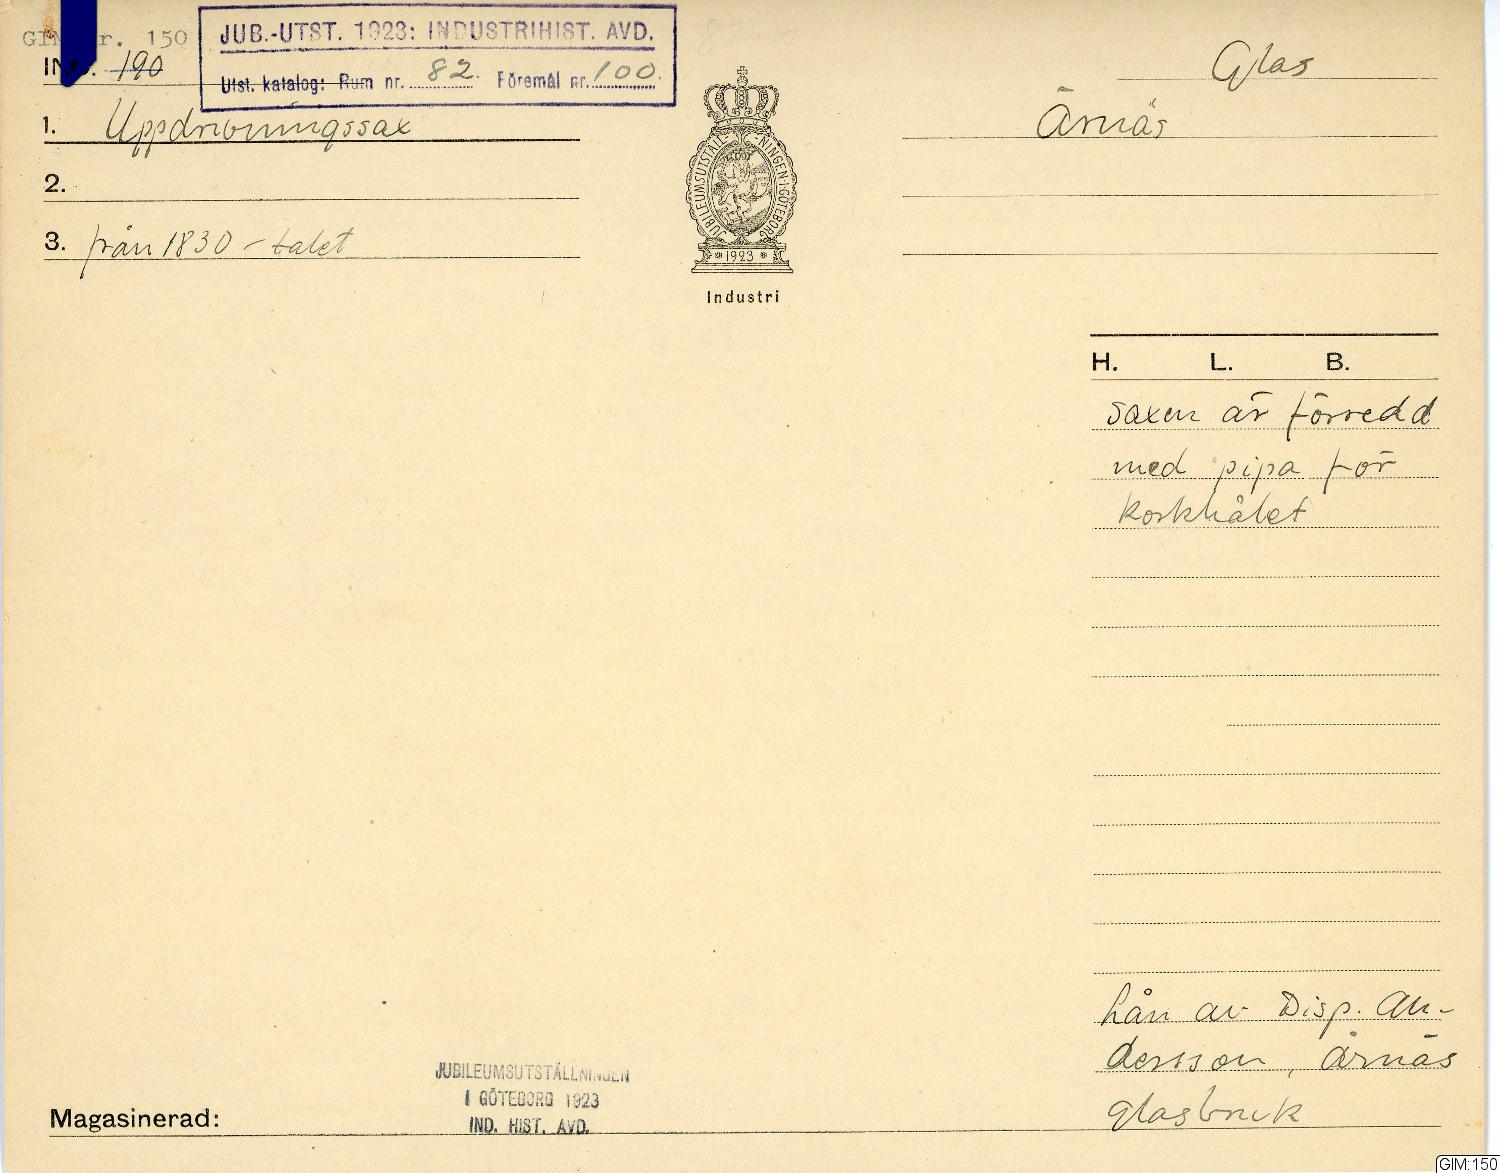 GIM nr. 150
JUB.-UTST. 1923: INDUSTRIHIST. AVD.
Utst. katalog: Rum nr. 82. Föremål nr. 100.
190
1. Uppdrivningssax
2.
3. från 1830-talet
JUBILEUMSUTSTÄLLNINGEN I GÖTEBORG
1923
Industri
Glas
Årnäs
H. L. B.
saxen är försedd
med pipa för
korkhålet
Lån av Disp. An-
dersson, Årnäs
glasbruk
JUBILEUMSUTSTÄLLNINGEN
I GÖTEBORG 1923
IND. HIST. AVD.
Magasinerad:
GIM:150